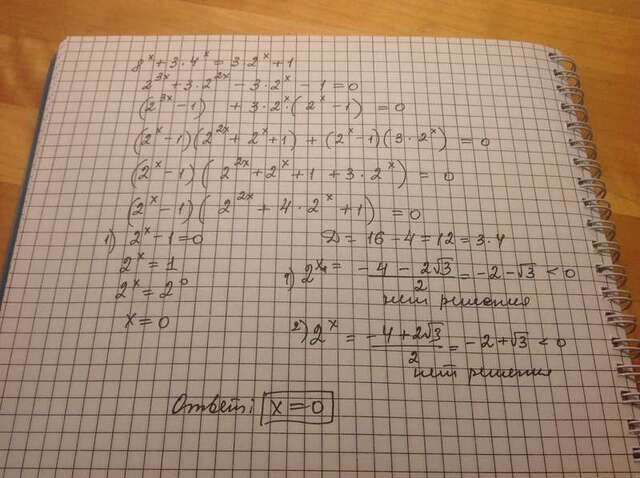 8^x + 3·4^x = 3·2^x + 1
2^{3x} + 3·2^{2x} − 3·2^x − 1 = 0
(2^{3x} − 1) + 3·2^x·(2^x − 1) = 0
(2^x − 1)(2^{2x} + 2^x + 1) + (2^x − 1)(3·2^x) = 0
(2^x − 1)(2^{2x} + 2^x + 1 + 3·2^x) = 0
(2^x − 1)(2^{2x} + 4·2^x + 1) = 0
1) 2^x − 1 = 0
2^x = 1
2^x = 2^0
x = 0
D = 16 − 4 = 12 = 3·4
1) 2^x = (−4 − 2√3)/2 = −2 − √3 < 0
нет решения
2) 2^x = (−4 + 2√3)/2 = −2 + √3 < 0
нет решения
Ответ: x = 0